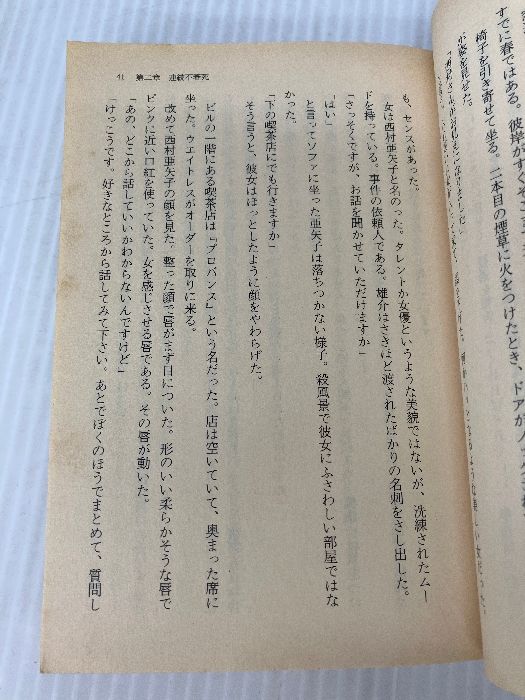 すでに春である。彼岸がすぐそこ
椅子を引き寄せて坐る。二本目の煙草に火をつけたとき、ドアが
41 第二章 連続不審死
も、センスがあった。
女は西村亜矢子と名のった。タレントか女優というような美貌ではないが、洗練されたムー
ドを持っている。事件の依頼人である。雄介はさきほど渡されたばかりの名刺をさし出した。
「さっそくですが、お話を聞かせていただけますか」
「はい」
と言ってソファに坐った亜矢子は落ちつかない様子。殺風景で彼女にふさわしい部屋ではな
かった。
「下の喫茶店にでも行きますか」
そう言うと、彼女はほっとしたように顔をやわらげた。
ビルの一階にある喫茶店は『プロバンス』という名だった。店は空いていて、奥まった席に
坐った。ウエイトレスがオーダーを取りに来る。
改めて西村亜矢子の顔を見た。整った顔で唇がまず目についた。形のいい柔らかそうな唇で
ピンクに近い口紅を使っていた。女を感じさせる唇である。その唇が動いた。
「あの、どこから話していいかわからないんですけど」
「けっこうです。好きなところから話してみて下さい。あとでぼくのほうでまとめて、質問し